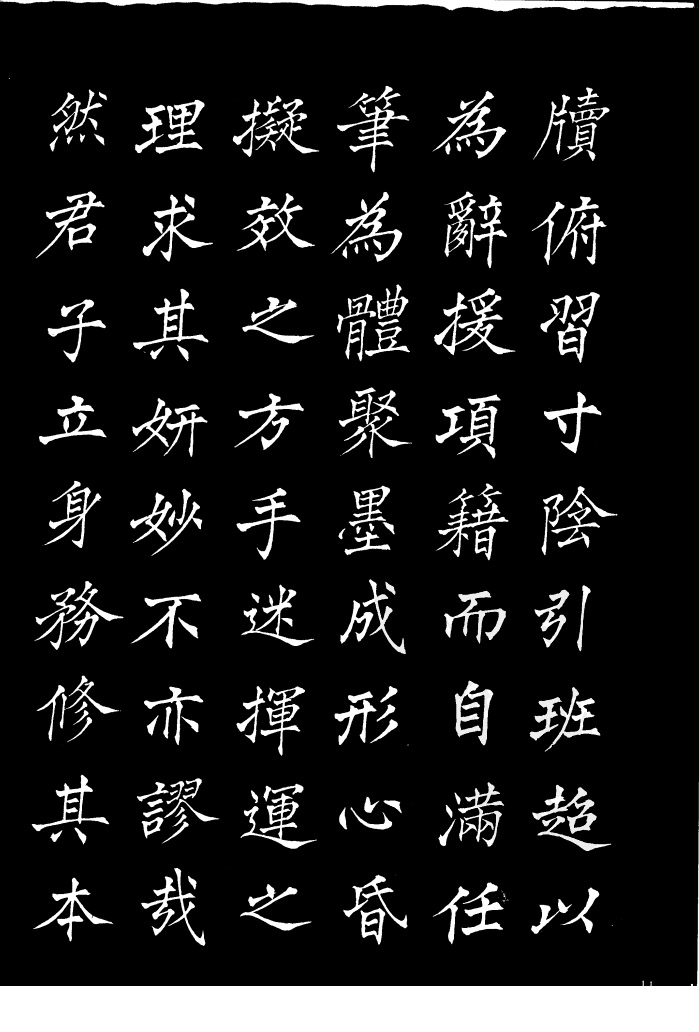 牘俯習寸陰引班超以
為辭援項籍而自滿任
筆為體聚墨成形心昏
擬效之方手迷揮運之
理求其妍妙不亦謬哉
然君子立身務修其本